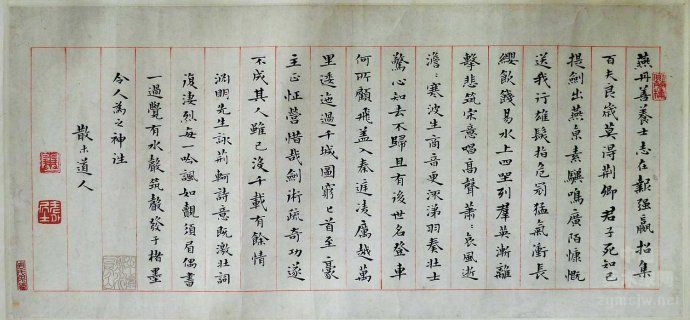 燕丹善養士志在報強嬴招集
百夫良歲莫得荊卿君子死知己
提劍出燕京素驥鳴廣陌慷慨
送我行雄髮指危冠猛氣衝長
纓飲餞易水上四坐列羣英漸離
擊悲筑宋意唱高聲蕭〻哀風逝
澹〻寒波生商音更流涕羽奏壯士
驚心知去不歸且有後世名登車
何所顧飛蓋入秦庭凌厲越萬
里逶迤過千城圖窮事自至豪
主正怔營惜哉劍術疏奇功遂
不成其人雖已沒千載有餘情
淵明先生詠荊軻詩意既激壯詞
復淒烈每一吟諷如覩須眉偶書
一過覺有水聲筑聲發于楮墨
令人為之神
散木道人